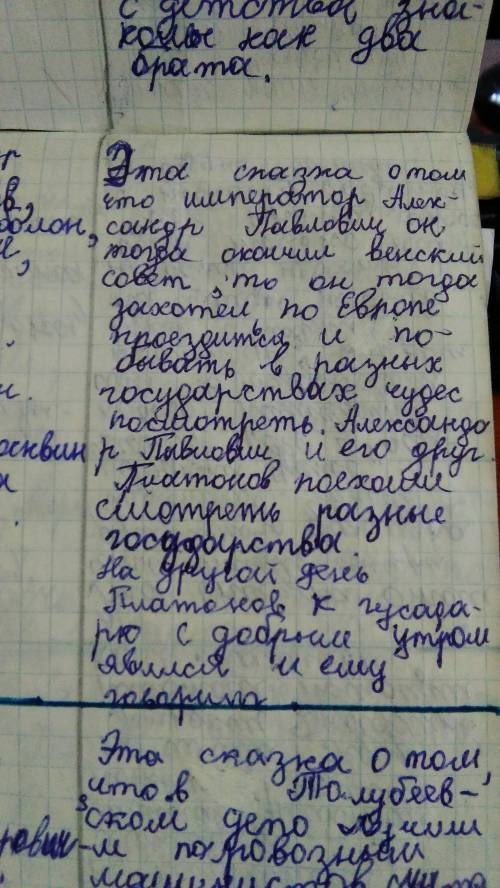 с детства зна-
комы как два
брата.
Эта сказка о том
что император Алек-
сандр Павлович он
тогда окончил венский
совет, то он тогда
захотел по Европе
проездится и по-
бывать в разных
государствах чудес
посмотреть. Александо
р Павлович и его друг
Платонов поехали
смотреть разные
государства.
На другой день
Платонов к гусада-
рю с добрым утром
явился и ему
говорила
Эта сказка о том,
что в Толубеев-
ском депо лучшим
м паровозным